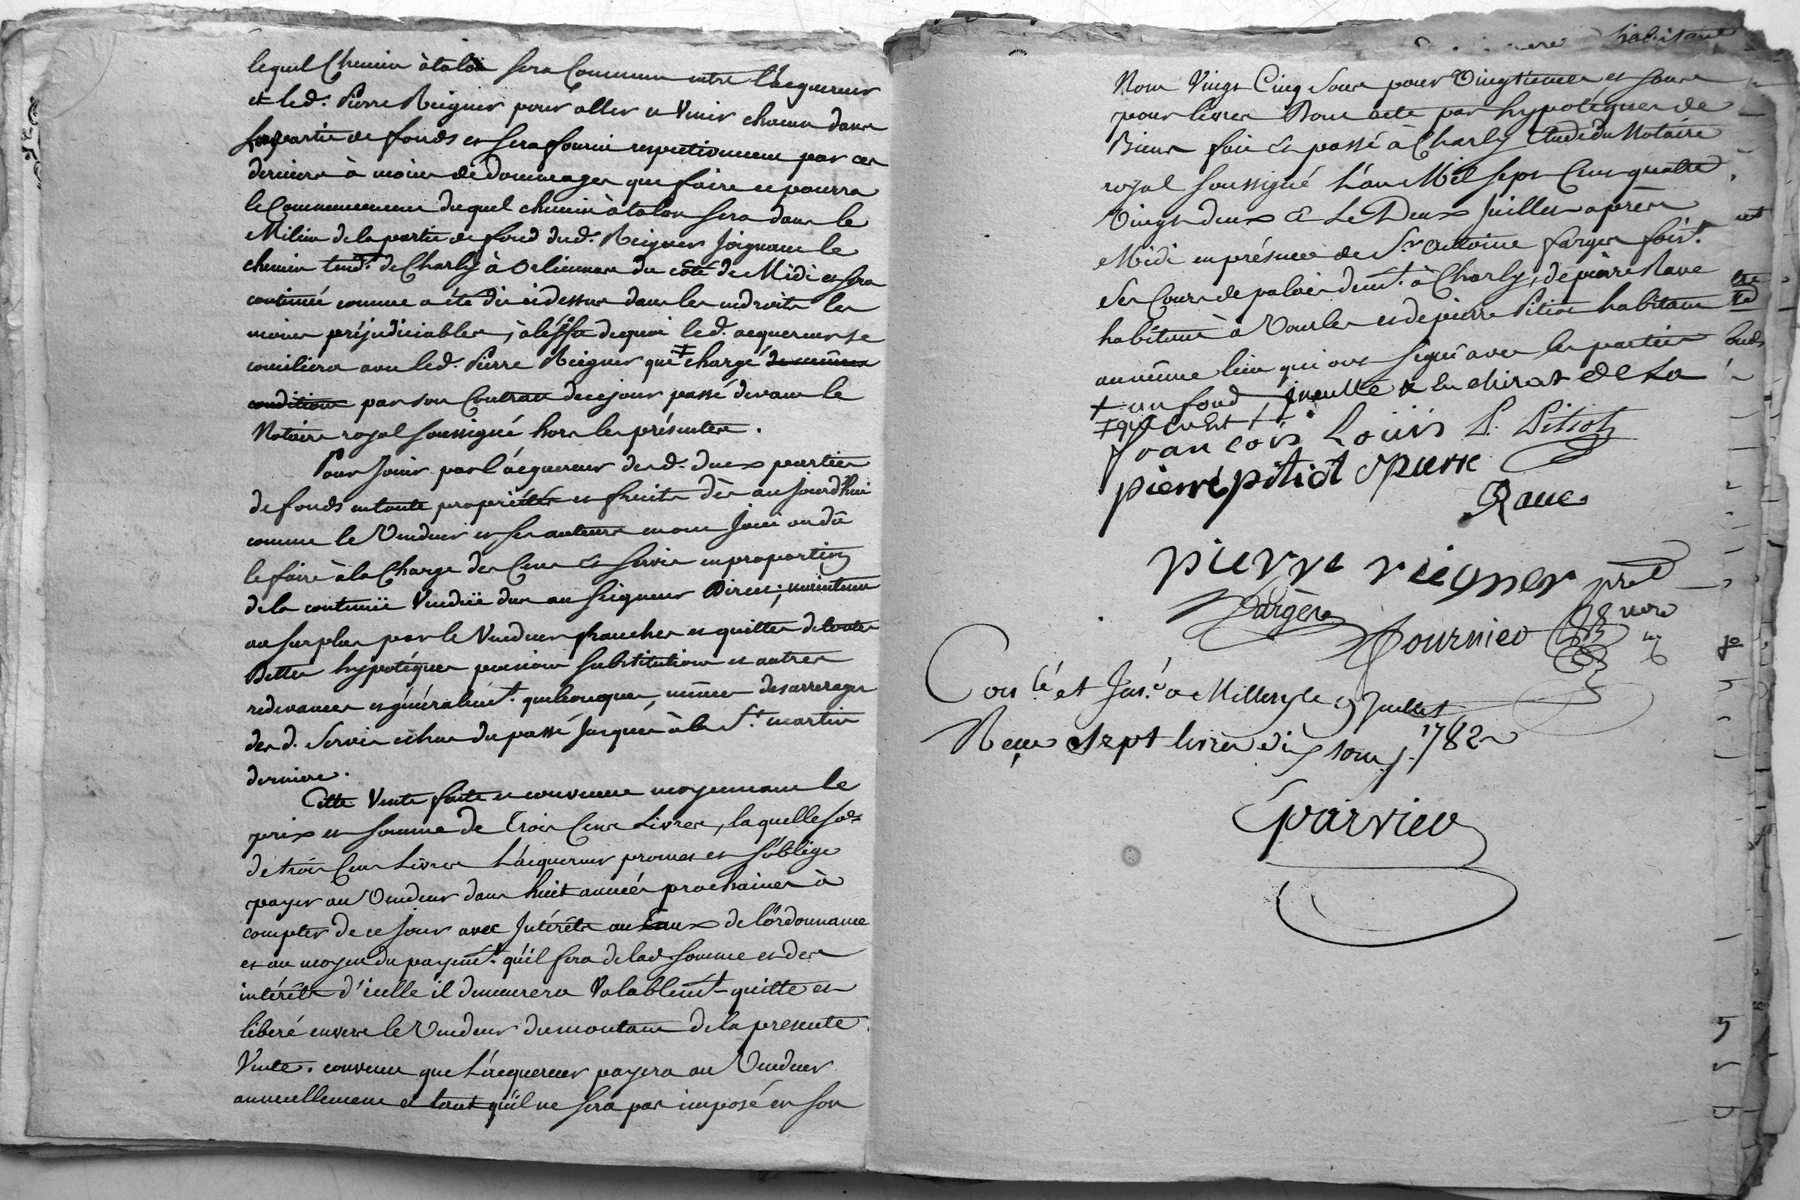 lequel Chemin àtalon sera Commun entre l'acquereur
et led. Pierre Reigner pour aller et venir chacun dans
sa partie de fonds et sera fourni respectivement par ces
derniers à moins de dommages que faire ce pourra
le Commencement duquel chemin àtalon sera dans le
Milieu de la partie de fond dud. Reigner Joignant le
chemin tend.t de Charly à Orliennas du côté de Midi et sera
continué comme a été dit cidessus dans les endroits les
moins préjudiciables, à l'éffet dequoi led. acquereur se
conciliera avec led. Pierre Reigner qui ‡ chargé de mêmes
condition par son Contrat decejour passé devant le
Notaire royal soussigné hors les présentes.
Pour Jouir par l'acquereur desd. deux parties
de fonds en toute propriétés et fruits dès aujourd'hui
comme le Vendeur et ses auteurs en ont Joui ou dû
le faire à la Charge des Cens et Servis en proportion
de la contenüe Vendüe dus au Seigneur Direct; maintenu
au surplus par le Vendeur franches et quittes de toutes
Dettes hypotéques pensions substitutions et autres
redevances et généralem.t quelconques, même des arrerages
desd. Servis échus du passé Jusques à la S.t martin
derniere.
Cette Vente faite et convenue moyennant le
prix et somme de Trois Cens Livres, laquelle so.e
de trois Cens Livres L'acquereur promet et s'oblige
payer au Vendeur dans huit années prochaines à
compter de ce jour avec Intérêts au Taux de l'ordonnance
et au moyen du payem.t qu'il fera de lad somme et des
intérêts d'icelle il demeurera Valablem.t quitte et
libéré envers le Vendeur du montant de la presente
Vente. convenu que L'acquereur payera au Vendeur
annuellement et tant qu'il ne sera pas imposé en son
habitant
Nom Vingt Cinq Sous pour Vingtiemes et sous
pour livres Dont acte par hypotéques de
Biens fait et passé à Charly Etude du Notaire
royal soussigné L'an Mil sept Cens quatre
Vingt deux & Le Deux Juillet après
Midi en présence de S.r Antoine farges
des Cours de palais dem.t à Charly, de pierre Rave
habitant à Vourles et de pierre Pitiot habitant
au même lieu qui ont signé avec les parties
+ un fond
‡ qui en est
françois Louis P. Pitiot
pierre pitiot pierre
Rave
pierre reigner
fargère
Fournier
Con.lé et Ins.é a Millery le 9 Juillet
1782
Reçu sept livres dix sous
Eparvier